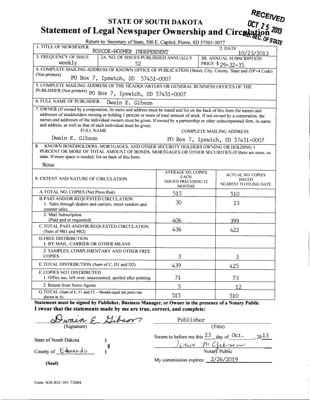 RECEIVED
OCT 25 2013
SEC. OF STATE
STATE OF SOUTH DAKOTA
Statement of Legal Newspaper Ownership and Circulation
Return to: Secretary of State, 500 E. Capitol, Pierre, SD 57501-5077
1. TITLE OF NEWSPAPER
ROSCOE-HOSMER INDEPENDENT
2. DATE
10/23/2013
3. FREQUENCY OF ISSUE
weekly
3A. NO. OF ISSUES PUBLISHED ANNUALLY
52
3B. ANNUAL SUBSCRIPTION
PRICE $ 29-32-35
4. COMPLETE MAILING ADDRESS OF KNOWN OFFICE OF PUBLICATION (Street, City, County, State and ZIP+4 Code)
(Not printers)
PO Box 7, Ipswich, SD 57451-0007
5. COMPLETE MAILING ADDRESS OF THE HEADQUARTERS OR GENERAL BUSINESS OFFICES OF THE
PUBLISHER (Not printers) PO Box 7, Ipswich, SD 57451-0007
6. FULL NAME OF PUBLISHER: Dwain E. Gibson
7. OWNER (If owned by a corporation, its name and address must be stated and list on the back of this form the names and
addresses of stockholders owning or holding 1 percent or more of total amount of stock. If not owned by a corporation, the
names and addresses of the individual owners must be given. If owned by a partnership or other unincorporated firm, its name
and address, as well as that of each individual must be given.
FULL NAME
COMPLETE MAILING ADDRESS
Dwain E. Gibson
PO Box 7, Ipswich, SD 57451-0007
8. KNOWN BONDHOLDERS, MORTGAGES, AND OTHER SECURITY HOLDERS OWNING OR HOLDING 1
PERCENT OR MORE OF TOTAL AMOUNT OF BONDS, MORTGAGES OR OTHER SECURITIES (If there are none, so
state. If more space is needed, list on back of this form.
None
9. EXTENT AND NATURE OF CIRCULATION
AVERAGE NO. COPIES
EACH
ISSUED PRECEDING 12
MONTHS
ACTUAL NO. COPIES
ISSUED
NEAREST TO FILING DATE
A. TOTAL NO. COPIES (Net Press Run)
515
510
B. PAID AND/OR REQUESTED CIRCULATION
1. Sales through dealers and carriers, street vendors and
counter sales.
30
23
2. Mail Subscription
(Paid and or requested)
406
399
C. TOTAL PAID AND/OR REQUESTED CIRCULATION
(Sum of 9B1 and 9B2)
436
422
D. FREE DISTRIBUTION
1. BY MAIL, CARRIER OR OTHER MEANS
2. SAMPLES, COMPLIMENTARY AND OTHER FREE
COPIES
3
3
E. TOTAL DISTRIBUTION (Sum of C, D1 and D2)
439
425
F. COPIES NOT DISTRIBUTED
1. Office use, left over, unaccounted, spoiled after printing
71
73
2. Return from News Agents
5
12
G. TOTAL (Sum of E, F1 and F2 - Should equal net press run
shown in A)
515
510
Statement must be signed by Publisher, Business Manager, or Owner in the presence of a Notary Public
I swear that the statements made by me are true, correct, and complete:
Dwain E. Gibson
Publisher
(Signature)
(Title)
State of South Dakota )
§
County of Edmunds )
Sworn to before me this 23 day of Oct., 2013
Notary Public
(Seal)
My commission expires: 2/26/2019
Form: SOS REC 051 7/2004